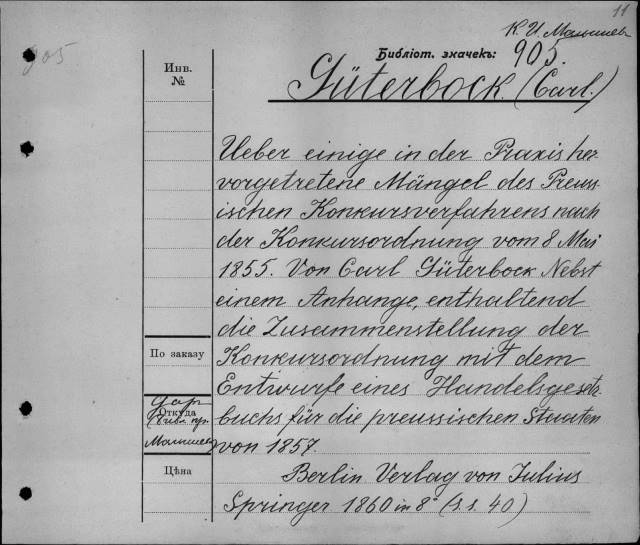 11
К. И. Малышев
905
Библіот. значекъ: 905.
Инв.
№
Güterbock. (Carl.)
Ueber einige in der Praxis her-
vorgetretene Mängel des Preus-
sischen Konkursverfahrens nach
der Konkursordnung vom 8 Mai
1855. Von Carl Güterbock Nebst
einem Anhange, enthaltend
die Zusammenstellung der
По заказу
Konkursordnung mit dem
Entwurfe eines Handelsgesetz-
Даръ
Откуда
buchs für die preussischen Staaten
Малышева
von 1857.
Цѣна
Berlin Verlag von Julius
Springer 1860 in 8° (S. s. 40)